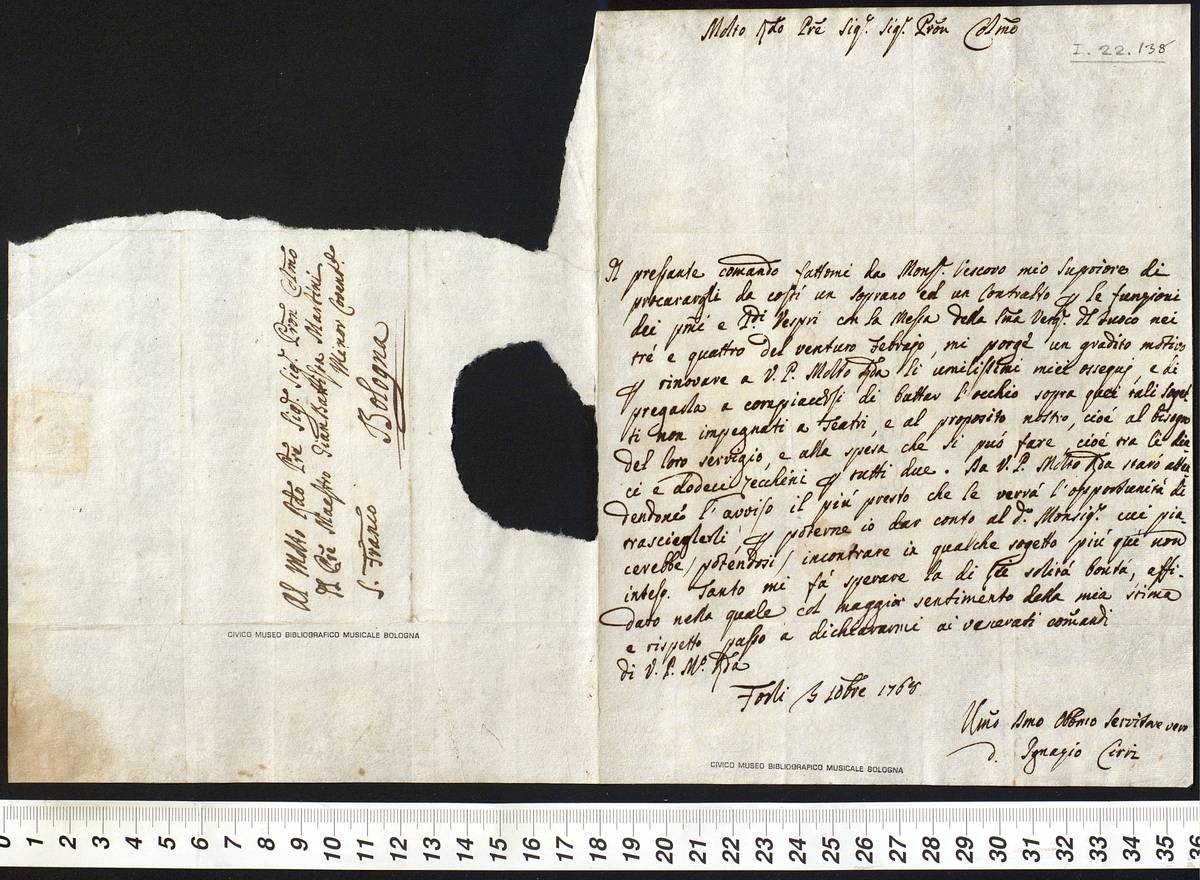 Molto Rdo Pre Sigr. Sigr. Pron Colmo
I. 22. 138
Il pressante comando fattomi da Monsr. Vescovo mio Superiore di
procurargli da costì un Soprano ed un Contralto le funzioni
dei pmi e 2di Vespri con la Messa della Sma Verg. del Fuoco nei
tré e quattro del venturo Febrajo, mi porge un gradito motivo
rinovare a V. P. Molto Rda li umilissimi miei ossequj, e di
pregarla a compiacersi di buttar l'occhio sopra quei tali Sogget
ti non impegnati a Teatri, e al proposito nostro, cioé al bisogno
del loro servigio, e alla spesa che si può fare, cioé tra li die
ci e dodeci Zecchini tutti due. Da V. P. Molto Rda staró atten
dendone l'avviso il piú presto che le verrá l'opportunitá di
trasciegherli poterne io dar conto al do. Monsigr. cui pia-
cerebbe, poténdosi, incontrare in qualche sogetto piú quì non
inteso. Tanto mi fá sperare la di Lei solitá bontá, affi-
dato nella quale col maggior sentimento della mia stima
e rispetto passo a dichiararmi ai venerati comandi
di V. P. Mo. Rda
Forlì 3 Xbre 1768
Umo Dmo Obbmo Servitore vero
d. Ignazio Cirri
Al Molto Rdo Pre Sigr. Sigr. Pron Colmo
Il Pre Maestro GianBattista Martini
Minor Convent.
S. Franco
Bologna
CIVICO MUSEO BIBLIOGRAFICO MUSICALE BOLOGNA
CIVICO MUSEO BIBLIOGRAFICO MUSICALE BOLOGNA
0 1 2 3 4 5 6 7 8 9 10 11 12 13 14 15 16 17 18 19 20 21 22 23 24 25 26 27 28 29 30 31 32 33 34 35 36